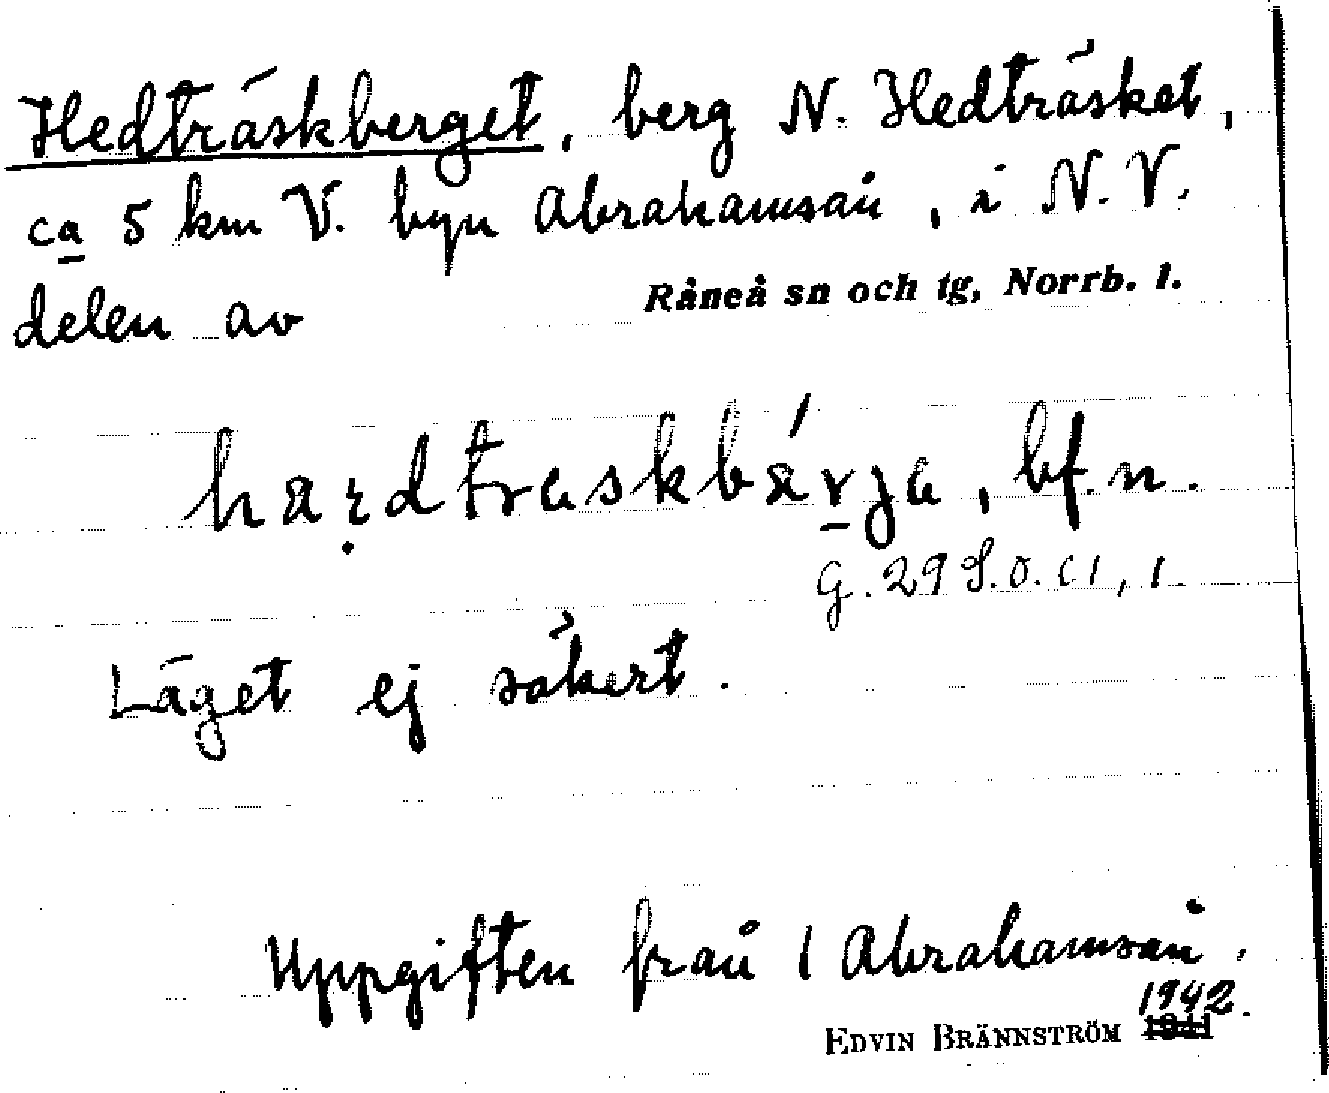 Hedträskberget, berg N. Hedträsket,
ca 5 km V. byn Abrahamsån, i N.V.
delen av Råneå sn och tg, Norrb. l.
bf.n.
G. 29 S.o. CI, 1.
Läget ej säkert.
Uppgiften från 1 Abrahamsån.
EDVIN BRÄNNSTRÖM 1941 1942.